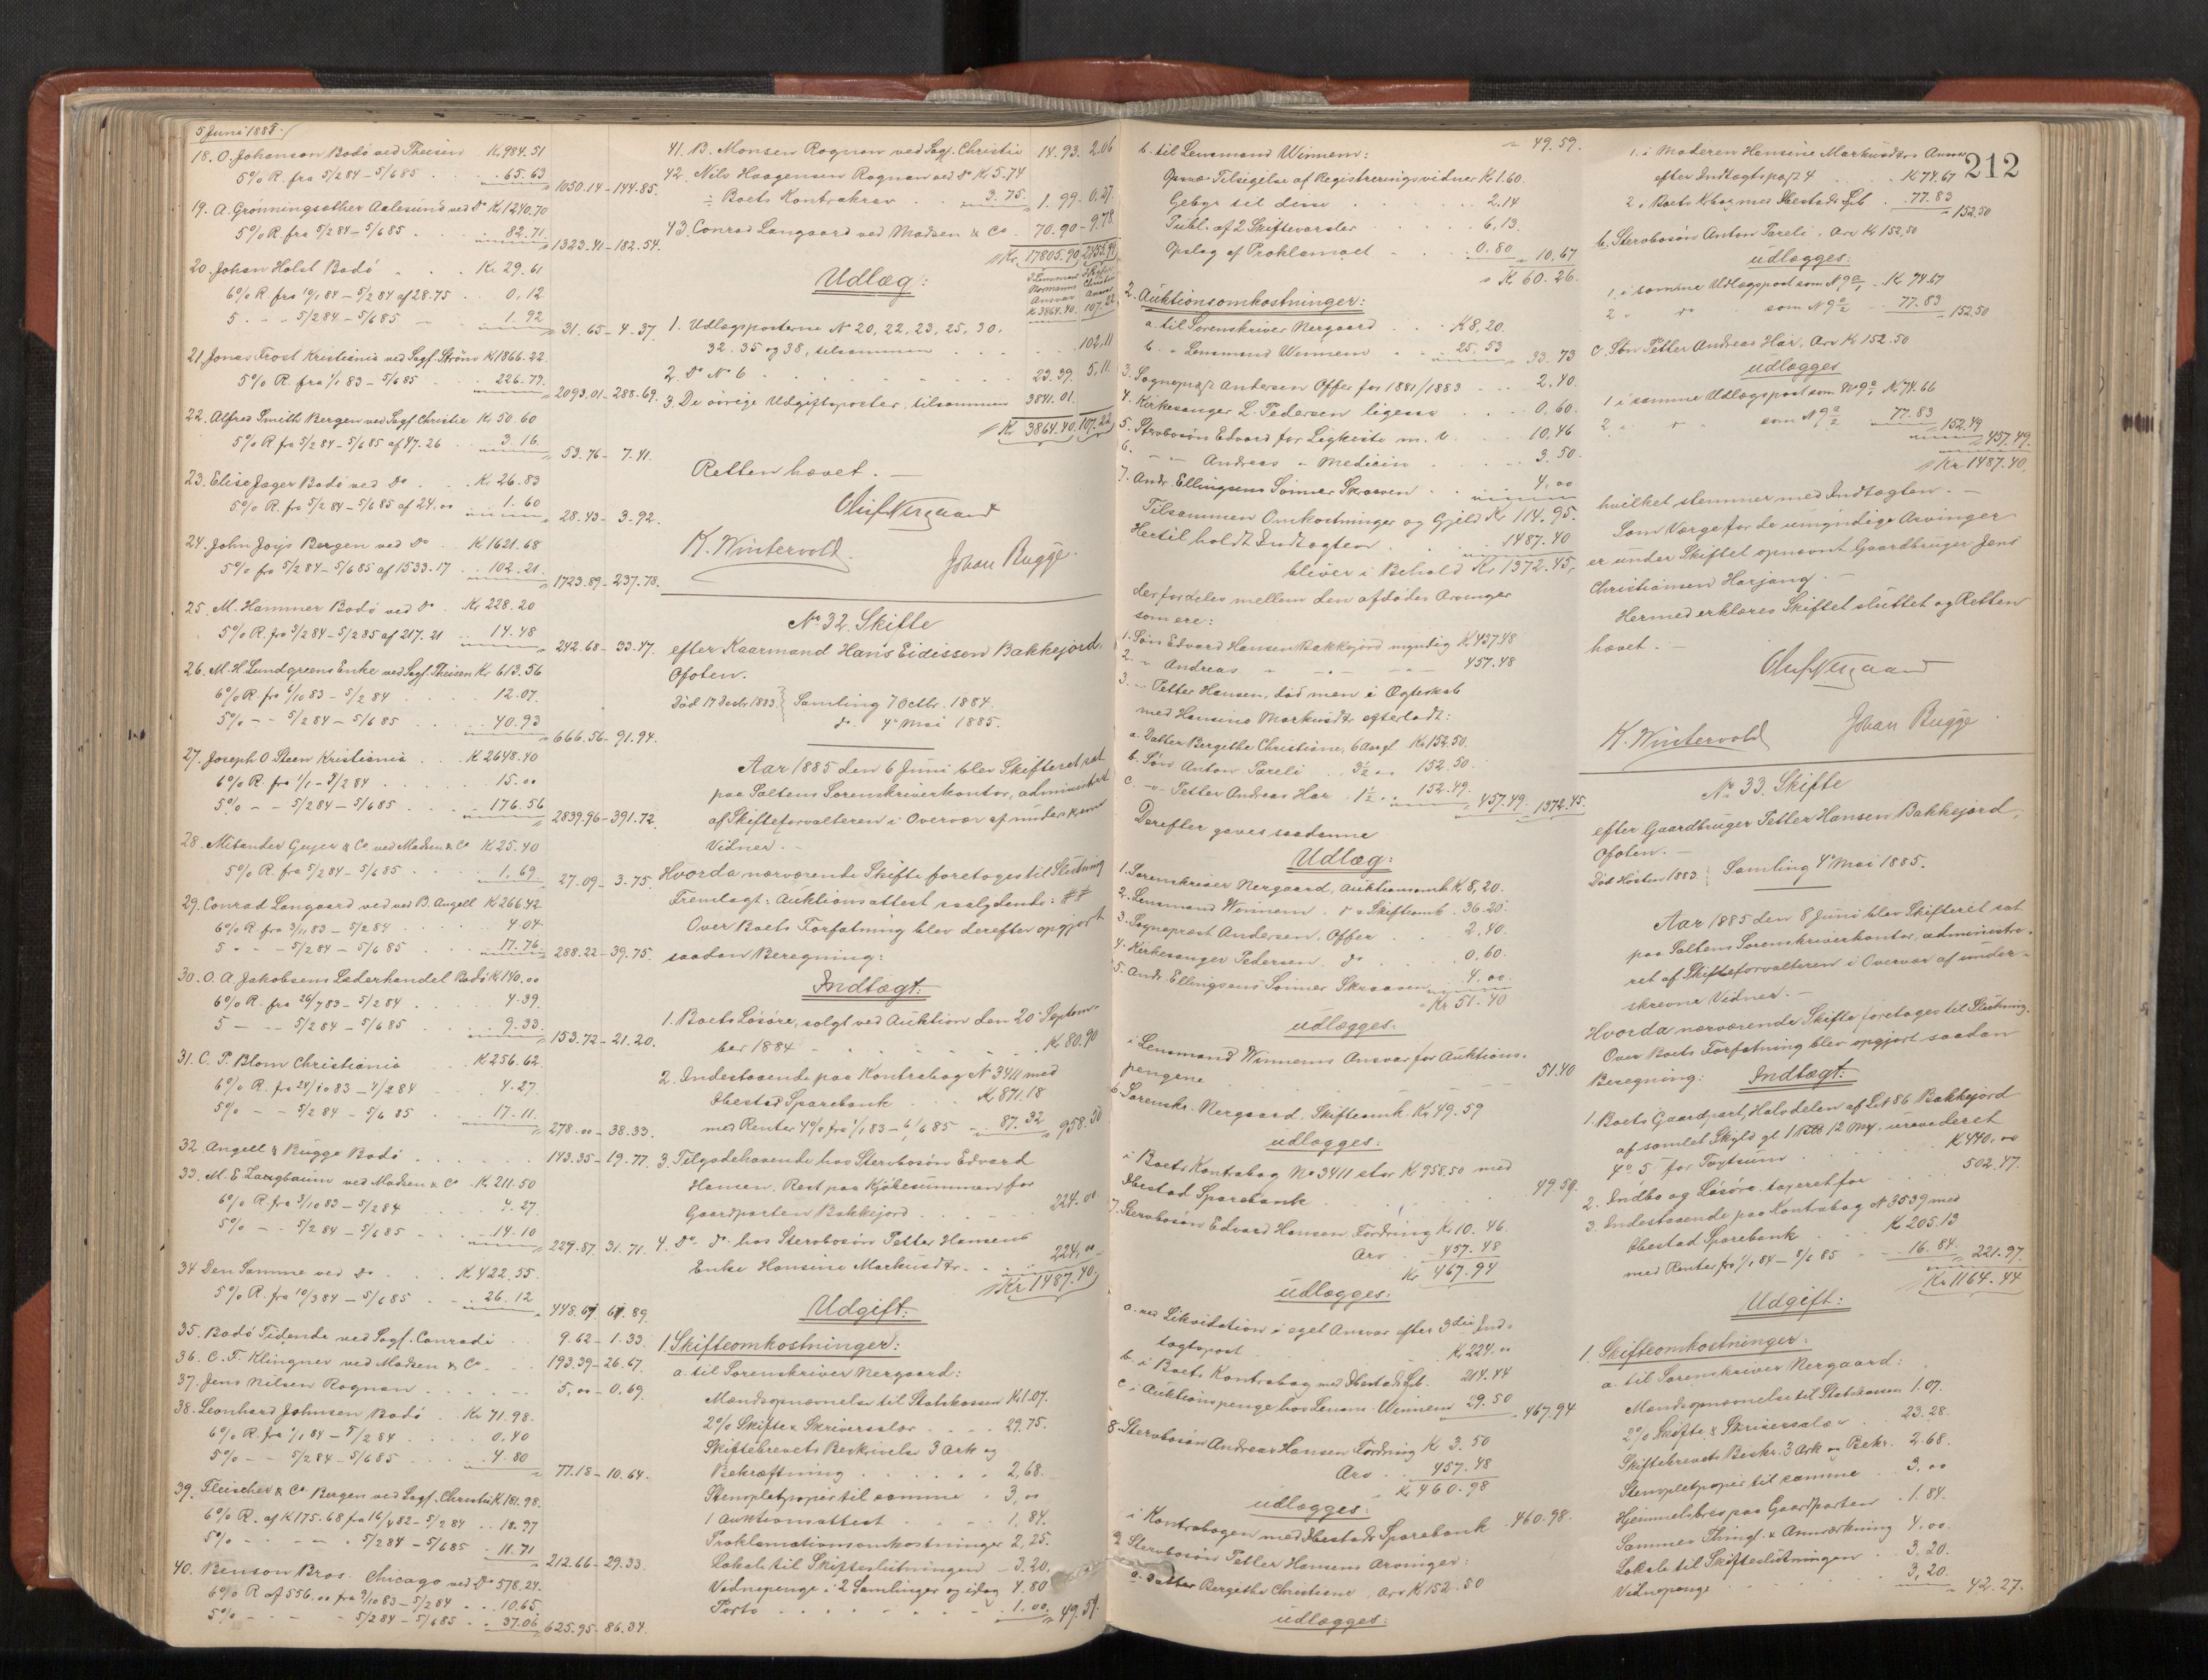 5 Juni 1885.
18. O. Johansen Bodö ved Theisen Kr 984.51
5% R. fra 5/2 84 – 5/6 85 . . 65.63 " 1050.14 – 144.85.
19. A. Grönningsæther Aalesund ved Do Kr 1240.70
5% R. fra 5/2 84 – 5/6 85 . . 82.71 " 1323.41 – 182.54.
20. Johan Holst Bodö . . Kr 29.61
6% R. fra 10/1 84 – 5/2 84 af 28.75 . 0,12
5 . – – 5/2 84 – 5/6 85 – 1.92 " 31.65 – 4.37.
21. Jonas Frost Kristiania ved Sagf. Ström Kr 1866.22.
5% R. fra 1/1 83 – 5/6 85 . . 226.79 " 2093.01 – 288.69.
22. Alfred Smith Bergen ved Sagf. Christie Kr 50.60
5% R fra 5/2 84 – 5/6 85 af 47.26 . 3.16. " 53.76 – 7.41.
23. Elise Jæger Bodö ved Do . . Kr 26.83
5% R. fra 5/2 84 – 5/6 85 af 24.00 1.60 " 28.43 – 3.92.
24. John Joys Bergen ved Do . Kr 1621.68
5% fra 5/2 84 – 5/6 85 af 1533.17 . . 102.21. " 1723.89 – 237.78.
25. M. Hammer Bodö ved Do . Kr 228.20
5% R. fra 5/2 84 – 5/2 85 af 217.21 . 14.48 " 242.68 – 33.47.
26. M. H. Lundgreens Enke ved Sagf. Theisen Kr 613.56
6% R. fra 6/10 83 – 5/2 84 . . 12.07.
5% – – 5/2 84 – 5/6 85 . . 40.93 " 666.56 – 91.94.
27. Joseph O. Steen Kristiania . . Kr 2648.40
6% R. fra 1/1 – 5/2 84 . . . 15.00
5% – – 5/2 84 – 5/6 85 . . 176.56 " 2839.96 – 391.72.
28. Melander Gujer & Co ved Madsen & Co Kr 25.40
5% R. fra 5/2 84 – 5/6 85 . . 1.69. 27.09 – 3.75.
29. Conrad Langaard ved ved B. Angell Kr 266.42
6% R. fra 3/11 83 – 5/2 84 . . 4.04
5 . – – 5/2 84 – 5/6 85 . . 17.76. 288.22 – 39.75.
30. O. A. Jakobsens Læderhandel Bodö Kr 140.00
6% R. fra 26/7 83 – 5/2 84 . . 4.39.
5 – – 5/2 84 – 5/6 85 . . 9.33. " 153.72 – 21.20.
31. C. P. Blom Christiania . Kr 256.62
6% R. fra 24/10 83 – 4/2 84 . 4.27.
5% – – 5/2 84 – 5/6 85 . . 17.11. " 278.00 – 38.33.
32. Angell & Bugge Bodö . . . 143.35 – 19.77.
33. M. E. Zargbaum ved Madsen & Co Kr 211.50
6% R. fra 3/10 83 – 5/2 84 . 4.27.
5% – . 5/2 84 – 5/6 85 . . 14.10 " 229.87. 31.71.
34 Den Samme ved Do . . . Kr 422.55.
5% R. fra 10/3 84 – 5/6 85 . . 26.12 " 448.67 61.89.
35. Bodö Tidende ved Sagf. Conradi 9.62 – 1.33.
36. C. F. Klingner ved Madsen & Co . . 193.39 – 26.67.
37. Jens Nilsen Rognan . . . 5,00 – 0.69.
38. Leonhard Johnsen Bodö . Kr 71.98.
6% R. fra 1/1 84 – 5/2 84 . . 0.40
5% – – 5/2 84 – 5/6 85 . . 4.80 " 77.18 – 10.64.
39. Fleischer & Co Bergen ved Sagf. Christie Kr 181.98.
6% R. af K 175.68 fra 16/4 82 – 5/2 84 . . 18.97
5% – . – . 5/2 84 – 5/6 85 . 11.71 " 212.66 – 29.33.
40. Benson Bros. Chicago ved Do 578.24.
6% R af 556.00 fra 9/10 83 – 5/2 84 . . 10.65.
5% – . – . 5/2 84 – 5/6 85 . . 37.06 " 625.95 – 86.34.
41. B. Monsen Rognan ved Sagf. Christie 14.93. 2.06
42. Nils Haagensen Rognan ved Do K 5.74
÷ Boets Kontrakrav . . 3.75. " 1.99. 0.27.
43. Conrad Langaard ved Madsen & Co . 70.90 – 9.78.
Kr. 17805.90 2455.94
Udlæg:
Lensmand Normanns Ansvar Kr 3864.40. Christie Ansvar 107.22
1. Udlægsposterne No 20, 22, 23, 25, 30,
32. 35 og 38, tilsammen . . . . 102,11
2. Do No 6 . . . . . 23.39. 5,11.
3. De övrige Udgiftsposter, tilsammen 3841.01.
Kr 3864.40. 107.22
Retten hævet. –
Oluf Nergaard
K. Wintervold. Johan Bugge.
No 32. Skifte
efter Kaarmand Hans Eidissen Bakkejord,
Ofoten.
Död 17 Decbr. 1883. } Samling 7 Octbr. 1884.
do. 4de Mai 1885.
Aar 1885 den 6 Juni blev Skifteret sat
paa Saltens Sorenskriverkontor, administret
af Skifteforvalteren i Overvær af underskrevne
Vidner. –
Hvorda nærværende Skifte foretoges til Slutning
Fremlagt: Auktionsattest saalydende: ##
Over Boets Forfatning blev derefter opgjort
saadan Beregning:
Indtægt:
1. Boets Lösöre, solgt ved Auktion den 20 Septem-
ber 1884 – . . . . Kr 80.90
2. Indestaaende paa Kontrabog No 3411 med
Ibestad Sparebank . . . Kr 871.18
med Renter 4% fra 1/1 83 – 6/6 85 . . 87.32 " 958.50
3. Tilgodehavende hos Stervbosön Edvard
Hansen. Rest paa Kjöbesummen for
Gaardparten Bakkejord . . . 224.00
4. Do. do. hos Stervbosön Petter Hansens
Enke Hansine Markusdtr. . . 224,00
Kr 1487.40.
Udgift:
1. Skifteomkostninger:
a. til Sorenskriver Nergaard:
Mandsopnævnelse til Statskassen Kr 1.07.
2% Skifte & Skriversalær . . . 29.75.
Skiftebrevets Beskrivelse 3 Ark og
Bekræftning . . . . 2,68.
Stempletpapir til samme . 3,00
1 Auktionsattest . . . 1,84.
Proklamationsomkostninger 2,25.
Lokale til Skifteslutningen – 3.20,
Vidnepenge i 2 Samlinger og idag 4.80
Porto . . . . . . 1.00. " 49.59.
" 49.59.
b. til Lensmand Winnem:
Opnævnelse Tilsigelse af Registreringsvidner Kr 1.60.
Gebyr til disse . . . . 2.14
Publ. af 2 Skiftevarsler . . . 6,13.
Opslag af Proklamaet . . 0.80 " 10,67
" Kr 60.26.
2. Auktionsomkostninger:
a. til Sorenskriver Nergaard . . . K 8,20.
b. " Lensmand Winnem . . 25.53 " 33.73
3. Sognepræst Andersen Offer for 1881/1883 . . . 2.40.
4. Kirkesanger L. Pedersen ligesaa . . . 0,60.
5. Stervbosön Edvard for Ligkiste m. v. . . 10,46
6. – – Andreas " Medicin . . . 3.50.
7. Andr. Ellingsens Sönner Skraaven . . 4,00
Tilsammen Omkostninger og Gjeld Kr 114.95.
Hertil holdt Indtægten . . . 1487.40
bliver i Behold Kr 1372.45,
der fordeles mellem den afdödes Arvinger
som ere:
1. Sön Edvard Hansen Bakkejord myndig Kr 457.48
2. " Andreas – – . – 457.48
3. – Petter Hansen, död men i Ægteskab
med Hansine Markusdtr. efterladt:
a. Datter Bergithe Christiane, 6 Aar gl Kr 152.50.
b. Sön Anton Pareli . . 3½ . . 152.50.
c. – Petter Andreas Har . 1½ . . 152.49. " 457.49. 1372.45.
Derefter gaves saadanne
Udlæg:
1. Sorenskriver Nergaard, Auktionsomk. Kr 8,20.
2. Lensmand Winnem . do & Skifteomk. 36.20.
3. Sogneprest Andersen, Offer . . 2.40.
4. Kirkesanger Pedersen. do . . 0.60.
5. Andr. Ellingsens Sönner Skraaven . 4.00.
Kr 51.40
udlægges:
i Lensmand Winnems Ansvar for Auktions-
pengene . . . . 51.40
6. Sorenskr. Nergaard, Skifteomk. Kr. 49.59
udlægges:
i Boets Kontrabog No 3411 stor Kr 958.50 med
Ibestad Sparebank . . . . 49.59.
7. Stervbosön Edvard Hansen Fordring Kr 10.46.
Arv . . 457.48
Kr 467.94
udlægges:
a. ved Likvidation i eget Ansvar efter 3die Ind-
tægtspost . . . Kr 224.00
b. i Boets Kontrabog med Ibestads Spb. . 214.44
c. i Auktionspenge hos Lensm. Winnem 29.50 " 467.94
8. Stervbosön Andreas Hansen Fordring Kr 3.50
Arv . . 457.48
Kr 460.98
udlægges:
i Kontrabogen med Ibestads Sparebank . 460.98.
9. Stervbosön Petter Hansens Arvinger:
a. Datter Bergithe Christiane, Arv Kr 152.50
udlægges:
212
1. i Moderen Hansine Markusdtrs Ansvar
efter Indtægtspost 4 . . . K 74.67
2. i Boets K.bog med Ibestads Spb . 77.83 " 152.50
b. Stervbosön Anton Pareli, Arv Kr 152,50
udlægges:
1. i samme Udlægspost som No 9 a/1 . Kr 74.67
2 " do som No 9 a/2 – 77.83 " 152.50
c. Sön Petter Andreas Har, Arv Kr 152.50
udlægges
1 i samme Udlægspost som No 9 a/1 Kr 74.66
2 " " som No 9 a/2 77.83 " 152.49 " 457.49.
Kr 1487.40.
hvilket stemmer med Indtægten. –
Som Værge for de umyndige Arvinger
er under Skiftet opnævnt Gaardbruger Jens
Christiansen Harjang. –
Hermed erklæres Skiftet sluttet og Retten
hævet. –
Oluf Nergaard
K. Wintervold Johan Bugge.
No 33. Skifte
efter Gaardbruger Petter Hansen Bakkejord,
Ofoten. –
Död Hösten 1883. } Samling 4de Mai 1885.
Aar 1885 den 8 Juni blev Skifteret sat
paa Saltens Sorenskriverkontor, administre-
ret af Skifteforvalteren i Overvær af under-
skrevne Vidner. –
Hvorda nærværende Skifte foretoges til Slutning.
Over Boets Forfatning blev opgjort saadan
Beregning: Indtægt:
1. Boets Gaardpart, Halvdelen af L.No 86 Bakkejord
af samlet Skyld gl 1 12 , urevideret
4 o. 5 . for Taxtsum . . . K 440.00
2. Indbo og Lösöre, taxeret for . . . 502.47.
3. Indestaaende paa Kontrabog No 3539 med
Ibestad Sparebank . . . Kr 205.13
med Renter fra 1/1 84 – 8/6 85 . . 16.84. " 221.97
Kr 1164.44
Udgift:
1. Skifteomkostninger:
a. til Sorenskriver Nergaard:
Mandsopnævnelse til Statskassen 1.07.
2% Skifte & Skriversalær . . 23.28.
Skiftebrevets Beskr. 3 Ark og Bekr. 2.68.
Stempletpapir til samme . . 3,00
Hjemmelsbrev paa Gaardparten . 1.84.
Sammes Thingl. & Anmærkning 4,00.
Lokale til Skifteslutningen . . 3,20.
Vidnepenge . . . . 3,20. " 42.27.